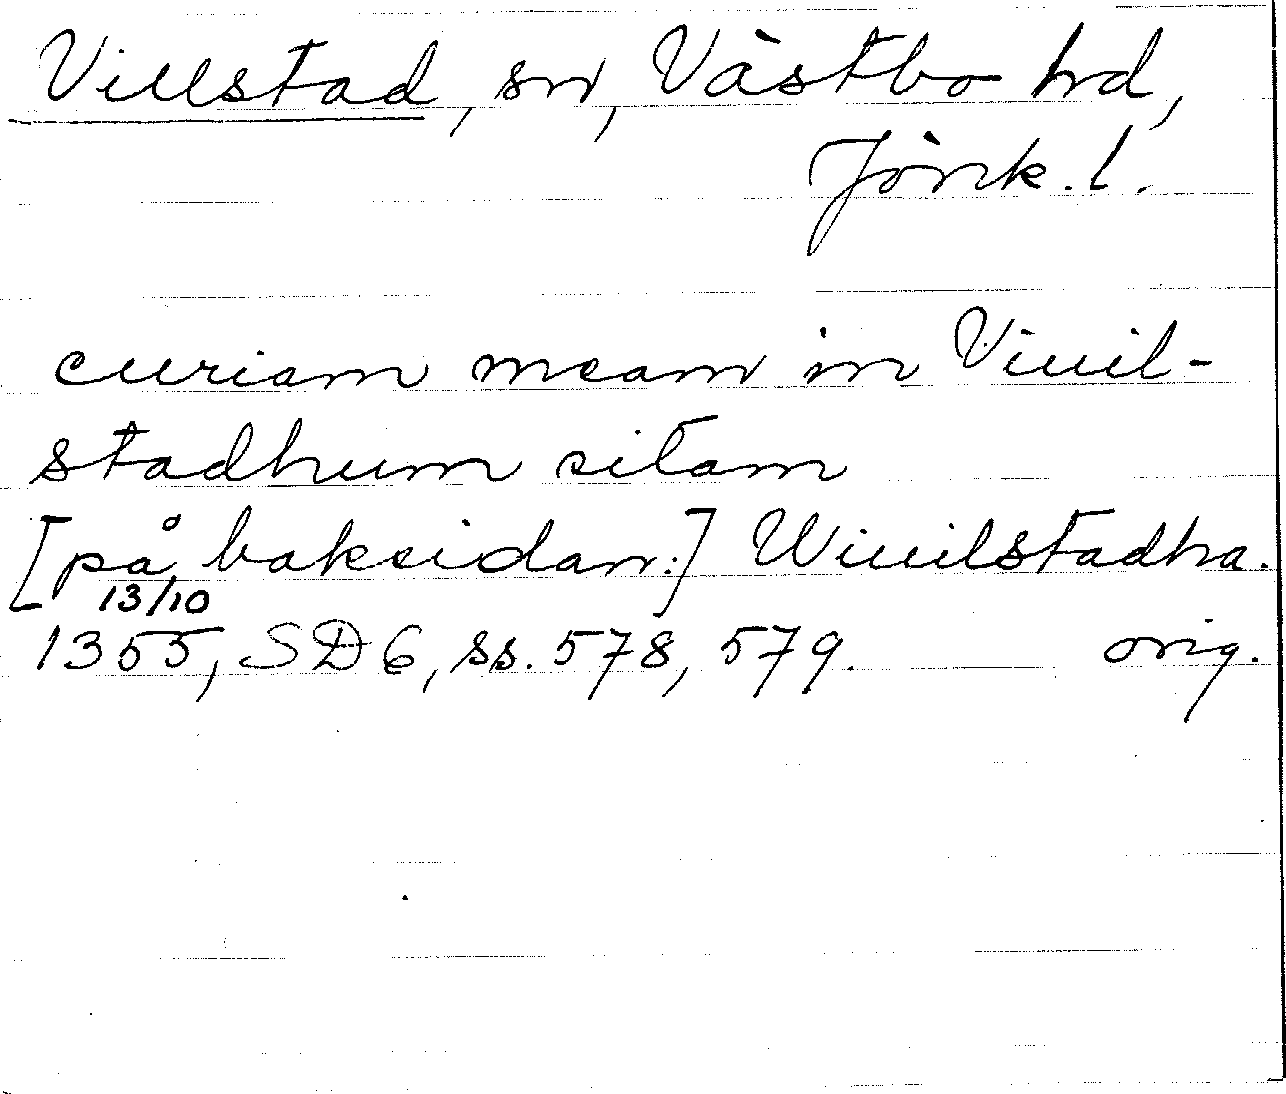 Villstad, sn, Västbo hd,
Jönk. l.
curiam meam in Viuil-
stadhum sitam
[på baksidan:] Wiuilstadha.
13/10
1355, SD 6, ss. 578, 579. orig.